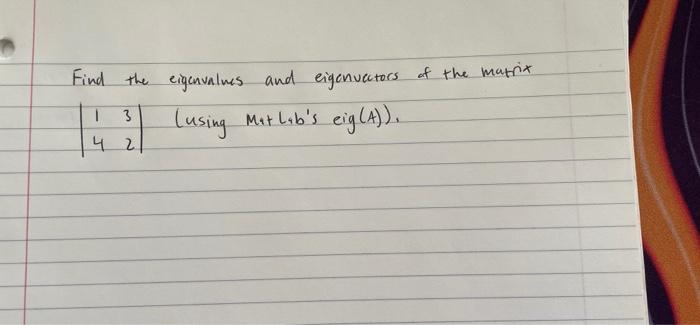 Find the eigenvalues and eigenvectors of the matrix
|1 3| (using MatLab's eig(A)).
|4 2|